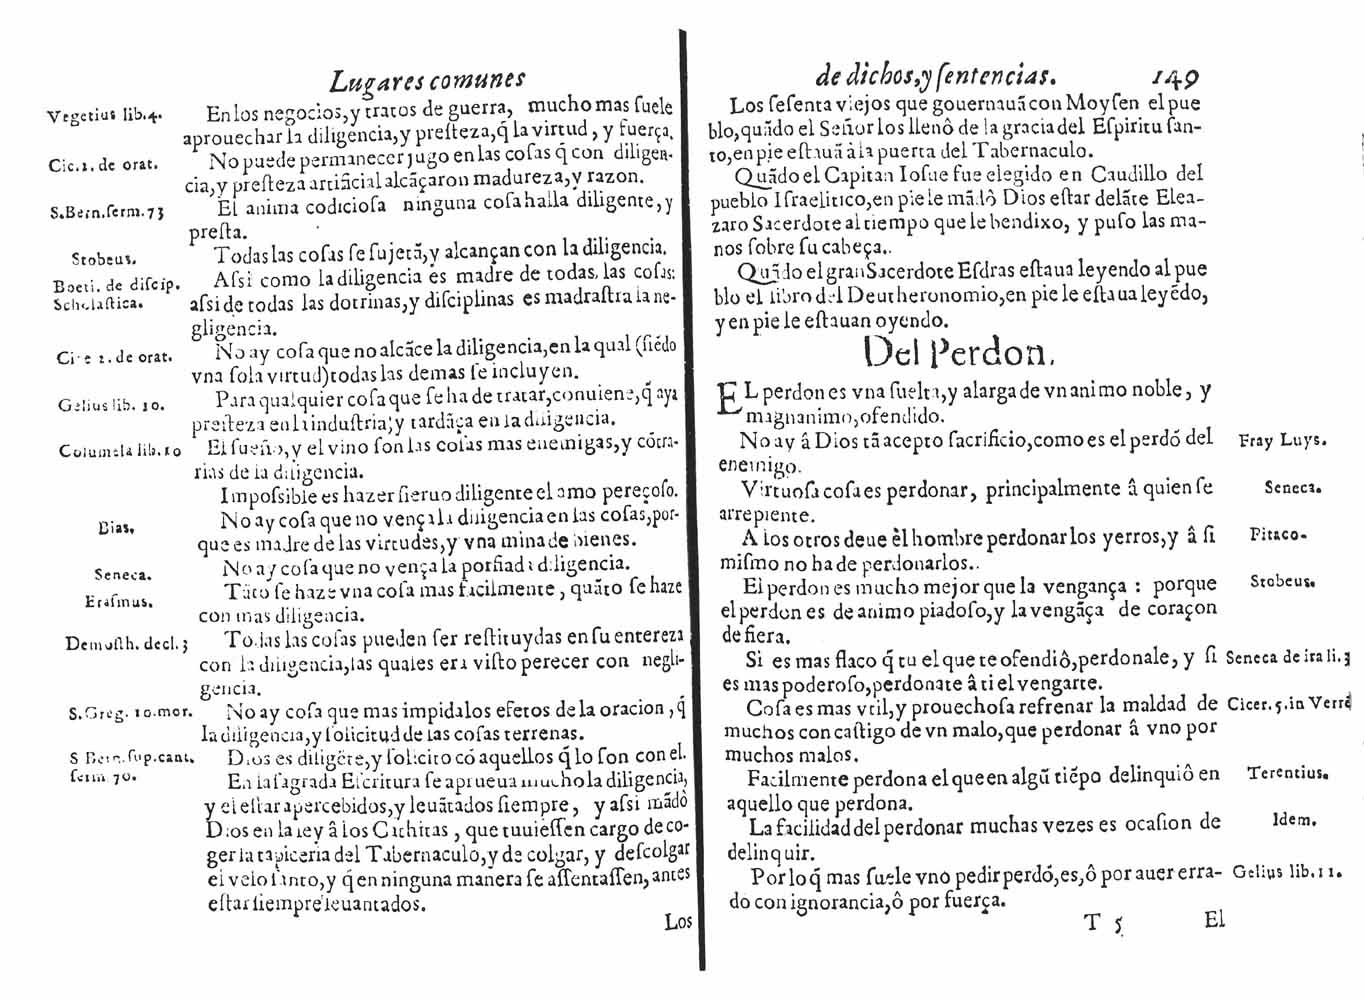 Lugares comunes
Vegetius lib.4.
En los negocios, y tratos de guerra, mucho mas ſuele
aprouechar la diligencia, y preſteza, q̃ la virtud, y fuerça.
Cic.1. de orat.
No puede permanecer jugo en las coſas q̃ con diligen-
cia, y preſteza artificial alcãçaron madureza, y razon.
S.Bern.ſerm.73
El anima codicioſa ninguna coſa halla diligente, y
preſta.
Stobeus.
Todas las coſas ſe ſujetã, y alcançan con la diligencia.
Boeti. de diſcip.
Scholaſtica.
Aſsi como la diligencia es madre de todas, las coſas:
aſsi de todas las dotrinas, y diſciplinas es madraſtra la ne-
gligencia.
Cice 2. de orat.
No ay coſa que no alcãce la diligencia, en la qual (ſiẽdo
vna ſola virtud) todas las demas ſe incluyen.
Gelius lib. 10.
Para qualquier coſa que ſe ha de tratar, conuiene, q̃ aya
preſteza en la induſtria, y tardãça en la diligencia.
Columela lib.10
El ſueño, y el vino ſon las coſas mas enemigas, y cõtra-
rias de la diligencia.
Impoſsible es hazer ſieruo diligente el amo pereçoſo.
Bias.
No ay coſa que no vença la diligencia en las coſas, por-
que es madre de las virtudes, y vna mina de bienes.
Seneca.
No ay coſa que no vença la porfiada diligencia.
Eraſmus.
Tãto ſe haze vna coſa mas facilmente, quãto ſe haze
con mas diligencia.
Demoſth. decl.3
Todas las coſas pueden ſer reſtituydas en ſu entereza
con la diligencia, las quales era viſto perecer con negli-
gencia.
S.Greg. 10.mor.
No ay coſa que mas impida los efetos de la oracion, q̃
la diligencia, y ſolicitud de las coſas terrenas.
S Bern.ſup.cant.
ſerm.70.
Dios es diligẽte, y ſolicito cõ aquellos q̃ lo ſon con el.
En la ſagrada Eſcritura ſe aprueua mucho la diligencia,
y el eſtar apercebidos, y leuãtados ſiempre, y aſsi mãdô
Dios en la ley â los Cathitas, que tuuieſſen cargo de co-
ger la tapiceria del Tabernaculo, y de colgar, y deſcolgar
el velo ſanto, y q̃ en ninguna manera ſe aſſentaſſen, antes
eſtar ſiempre leuantados.
Los
de dichos, y ſentencias. 149
Los ſeſenta viejos que gouernauã con Moyſen el pue
blo, quãdo el Señor los llenô de la gracia del Eſpiritu ſan-
to, en pie eſtauã â la puerta del Tabernaculo.
Quãdo el Capitan Ioſue fue elegido en Caudillo del
pueblo Iſraelitico, en pie le mãdô Dios eſtar delãte Elea-
zaro Sacerdote al tiempo que le bendixo, y puſo las ma-
nos ſobre ſu cabeça..
Quãdo el gran Sacerdote Eſdras eſtaua leyendo al pue
blo el libro del Deutheronomio, en pie le eſtaua leyẽdo,
y en pie le eſtauan oyendo.
Del Perdon.
EL perdon es vna ſuelta, y alarga de vn animo noble, y
magnanimo, ofendido.
No ay â Dios tã acepto ſacrificio, como es el perdõ del
Fray Luys.
enemigo.
Virtuoſa coſa es perdonar, principalmente â quien ſe
Seneca.
arrepiente.
A los otros deue êl hombre perdonar los yerros, y â ſi
Pitaco.
miſmo no ha de perdonarlos..
El perdon es mucho mejor que la vengança : porque
Stobeus.
el perdon es de animo piadoſo, y la vengãça de coraçon
de fiera.
Si es mas flaco q̃ tu el que te ofendiô, perdonale, y ſi
Seneca de ira li.3
es mas poderoſo, perdonate â ti el vengarte.
Coſa es mas vtil, y prouechoſa refrenar la maldad de
Cicer.5.in Verrẽ
muchos con caſtigo de vn malo, que perdonar â vno por
muchos malos.
Facilmente perdona el que en algũ tiẽpo delinquiô en
Terentius.
aquello que perdona.
La facilidad del perdonar muchas vezes es ocaſion de
Idem.
delinquir.
Por lo q̃ mas ſuele vno pedir perdõ, es, ô por auer erra-
Gelius lib.11.
do con ignorancia, ô por fuerça.
T 5 El